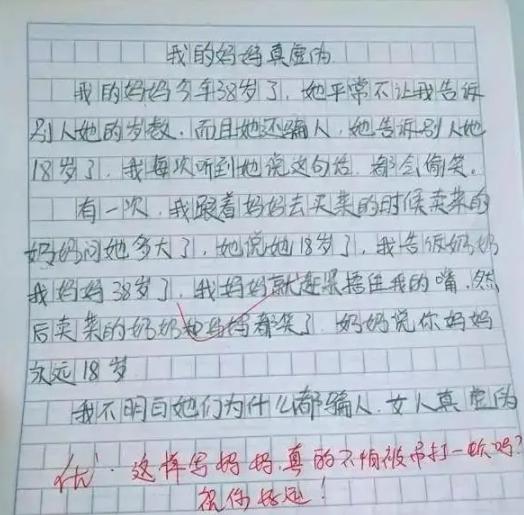 我的妈妈真虚伪
我的妈妈今年38岁了，她平常不让我告诉
别人她的岁数，而且她还骗人，她告诉别人她
18岁了，我每次听到她说这句话，都会偷笑。
有一次，我跟着妈妈去买菜的时候卖菜的
奶奶问她多大了，她说她18岁了，我告诉奶奶
我妈妈38岁了，我妈妈就赶紧捂住我的嘴，然
后卖菜的奶奶和妈妈都笑了，奶奶说你妈妈
永远18岁
我不明白她们为什么都骗人，女人真虚伪
优 这样写妈妈真的不怕被吊打一顿吗？
祝你好运！